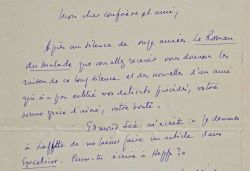 Mon cher confrère et ami,
Après un silence de onze années Le Roman
du malade que vous allez recevoir vous donnera les
raisons de ce long silence et des nouvelles d'un ami
qui n'a pas oublié vos délicats procédés, votre
bonne grâce d'aîné, votre bonté.
Edmond Sée m'écrit : je demande
à Laffitte de me laisser faire un article dans
Excelsior. Peux-tu écrire à